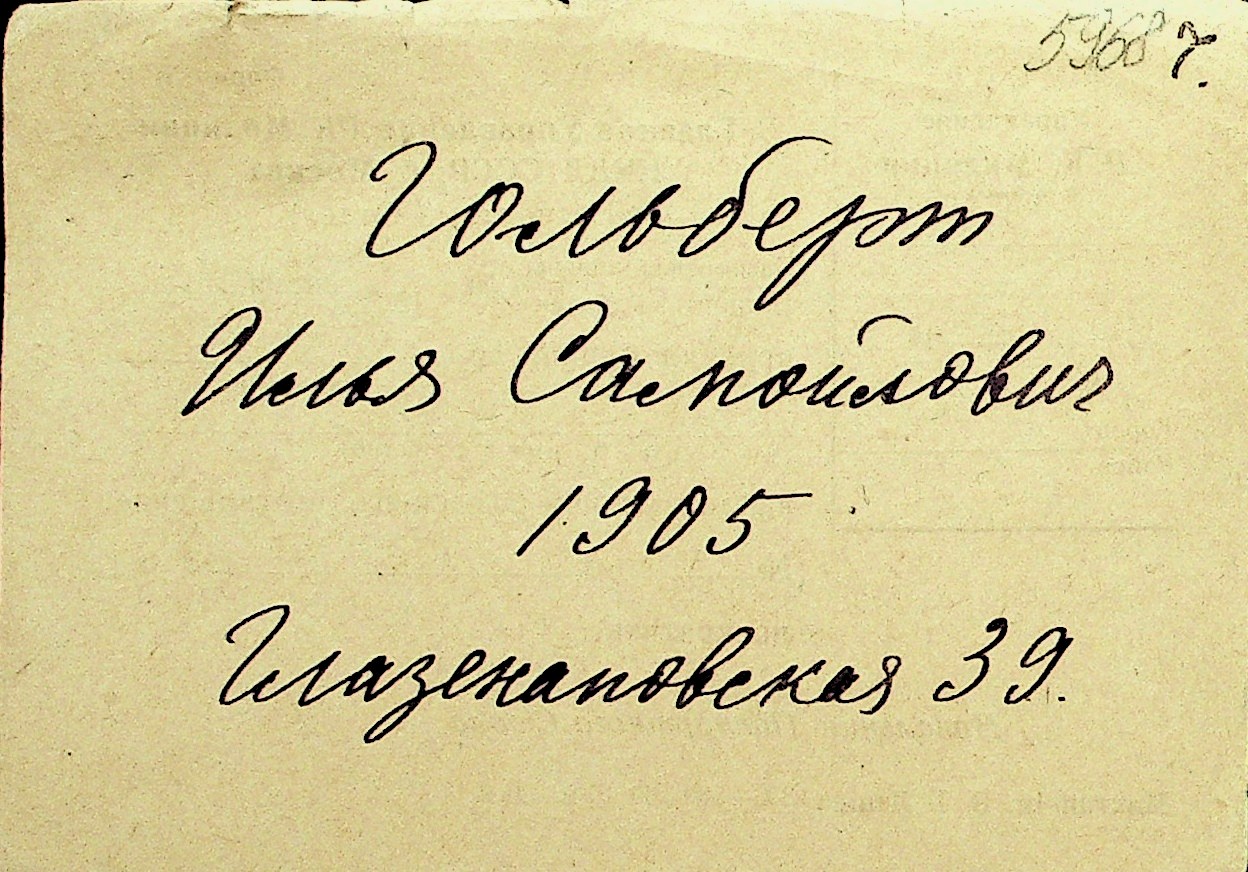 5968 г.
Гольберт
Илья Самойлович
1905
Глазенаповская 39.